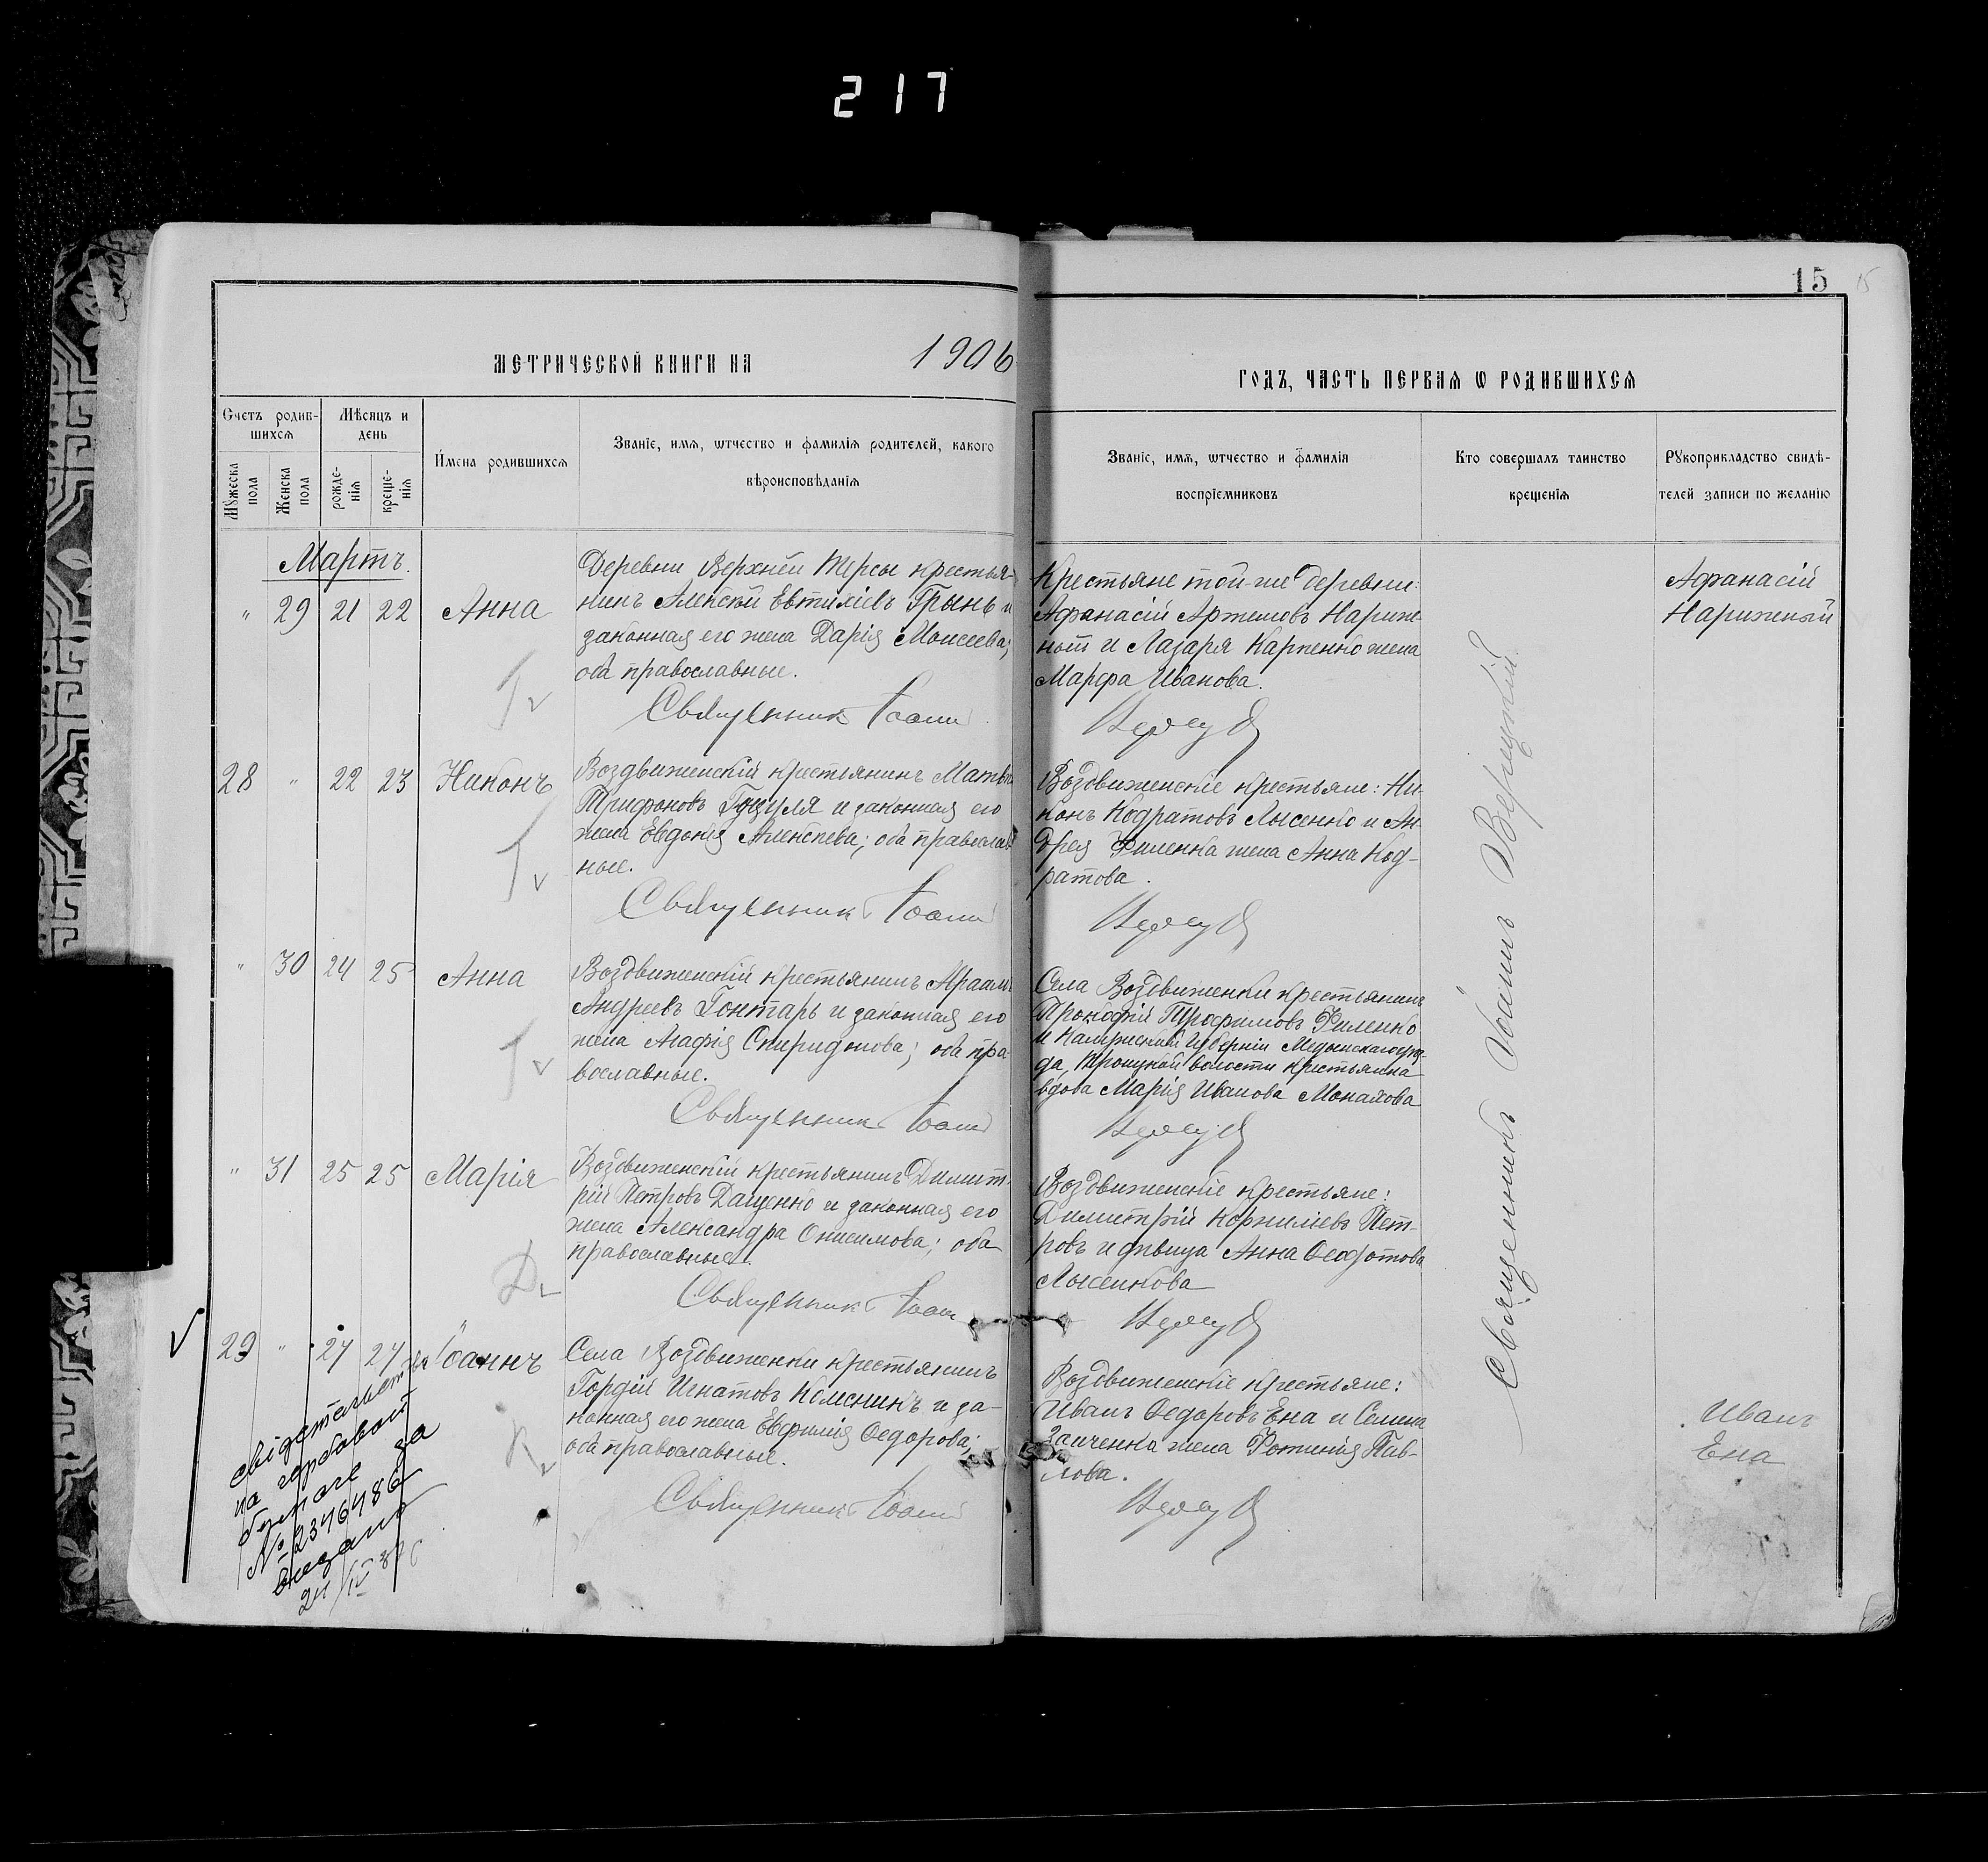 217
15
15
МЕТРИЧЕСКОЙ КНИГИ НА 1906
ГОДЪ, ЧАСТЬ ПЕРВАѦ Ѡ РОДИВШИХСѦ
Счетъ родив-
шихсѧ
Мѣсяцъ и
день
Мꙋжеска
пола
Женска
пола
рожде-
нїѧ
креще-
нїѧ
Имена родившихсѧ
Званїе, имѧ, ѿтчество и фамилїѧ родителей, какого
вѣроисповѣданїѧ
Званїе, имѧ, ѿтчество и фамилїѧ
воспрїемниковъ
Кто совершалъ таинство
крещенїѧ
Рꙋкоприкладство свидѣ-
телей записи по желанїю
Мартъ.
" 29 21 22 Анна
Деревни Верхней Терсы крестья-
нинъ Алексѣй Евтихіевъ Грынь и
законная его жена Дарія Моисеева;
оба православные.
Священникъ Іоаннъ
Крестьяне той-же деревни:
Афанасій Артемовъ Нариж-
ный и Лазаря Карпенко жена
Марфа Иванова.
Афанасій
Нарижный
28 " 22 23 Никонъ
Воздвиженскій крестьянинъ Матвѣй
Трифоновъ Гуцуля и законная его
жена Евдокія Алексѣева; оба православ-
ные.
Священникъ Іоаннъ
Воздвиженскіе крестьяне: Ни-
конъ Кодратовъ Лысенко и Ан-
дрея Филенка жена Анна Код-
ратова.
" 30 24 25 Анна
Воздвиженскій крестьянинъ Авраамъ
Андреевъ Гонтарь и законная его
жена Агафія Спиридонова; оба пра-
вославные.
Священникъ Іоаннъ
Села Воздвиженки крестьянинъ
Прокофій Трофимовъ Филенко
и Калужской Губерніи Медынскаго уѣз-
да, Троицкой волости крестьянка
вдова Марія Иванова
" 31 25 25 Марія
Воздвиженскій крестьянинъ Димит-
рій Петровъ Даценко и законная его
жена Александра Онисимова; оба
православные.
Священникъ Іоаннъ
Воздвиженскіе крестьяне:
Димитрій Корниліевъ Пет-
ровъ и дѣвица Анна Ѳеодотова
Лысенкова
29 " 27 27 Іоаннъ
Села Воздвиженки крестьянинъ
Гордій Игнатовъ Колесникъ и за-
конная его жена Евфимія Ѳедорова;
оба православные.
Священникъ Іоаннъ
Воздвиженскіе крестьяне:
Иванъ Ѳедоровъ Ена и Семена
Заиченка жена Фотинія Пав-
лова.
Иванъ
Ена
Священникъ Іоаннъ Вержуцкій
на гербовой
бумаге за
№ 2346486
выдано